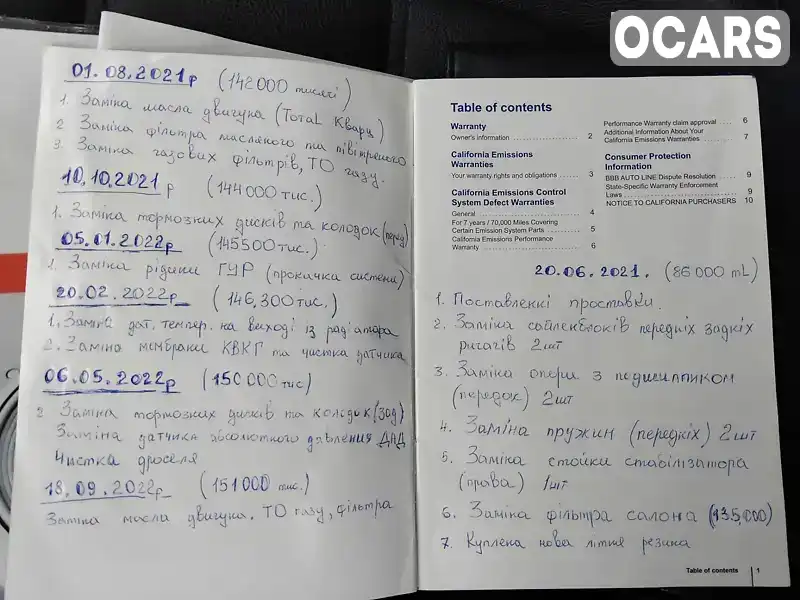 OCARS
01.08.2021р (142000 тисячі)
1. Заміна масла двигуна (Total Кварц)
2 Заміна фільтра масляного та півітряного
3. Заміна газових фільтрів, ТО газу.
10.10.2021 р (144000 тис.)
1. Заміна тормозних дисків та колодок (перед)
05.01.2022р (145500 тис.)
1. Заміна рідини ГУР (прокачка системи)
20.02.2022р (146,300 тис.)
1. Заміна дат. темпер. на виході із радіатора
2. Заміна мембрани КВКГ та чистка датчика
06.05.2022р (150000 тис)
2 Заміна тормозних дисків та колодок (зад)
Заміна датчика абсолютного давления ДАД
Чистка дроселя
18.09.2022р (151000 тис.)
Заміна масла двигуна. ТО газу, фільтра
Table of contents
Warranty
Owner's information 2
California Emissions
Warranties
Your warranty rights and obligations 3
California Emissions Control
System Defect Warranties
General 4
For 7 years / 70,000 Miles Covering
Certain Emission System Parts 5
California Emissions Performance
Warranty 6
Performance Warranty claim approval 6
Additional Information About Your
California Emissions Warranties 7
Consumer Protection
Information
BBB AUTO LINE Dispute Resolution 9
State-Specific Warranty Enforcement
Laws 9
NOTICE TO CALIFORNIA PURCHASERS 10
20.06.2021. (86000 mL)
1. Поставленні проставки.
2. Заміна сайленблоків передніх задніх
ричагів 2шт
3. Заміна опори з подшипником
(передок) 2шт
4. Заміна пружин (передніх) 2шт
5. Заміна стойки стабілізатора
(права) 1шт
6. Заміна фільтра салона (135,000)
7. Куплена нова літня резина
Table of contents 1